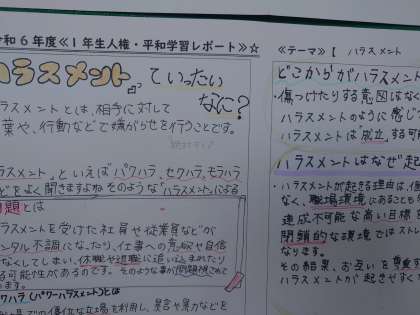 令和6年度≪1年生人権・平和学習レポート≫☆
ハラスメントって いったい
なに?
ハラスメントとは、相手に対して
葉や、行動などで嫌がらせを行うことです。
ハラスメント」といえばパワハラ、セクハラ、モラハラ
などをよく聞きますね そのような"ハラスメントによる
問題とは
ハラスメントを受けた社員や従業員などが
メンタル不調になったり、仕事への意欲や自信
なくしてしまい、休職や退職に追い込まれたり
る可能性があるのです。そのような事が問題視されて
パワハラ(パワーハラスメント)とは
での優位な立場を利用し、暴言や暴力などを
≪テーマ≫【 ハラスメント
どこからがハラスメン
・傷つけたりする意図はなく
ハラスメントのように感じ
ハラスメントは「成立」する可能
ハラスメントはなぜ起
・ハラスメントが起きる理由は、個
なく、職場環境にあることも
達成不可能な高い目標
閉鎖的な環境ではストレ
なります。
その結果、お互いを尊重す
ハラスメントが起きやすくな